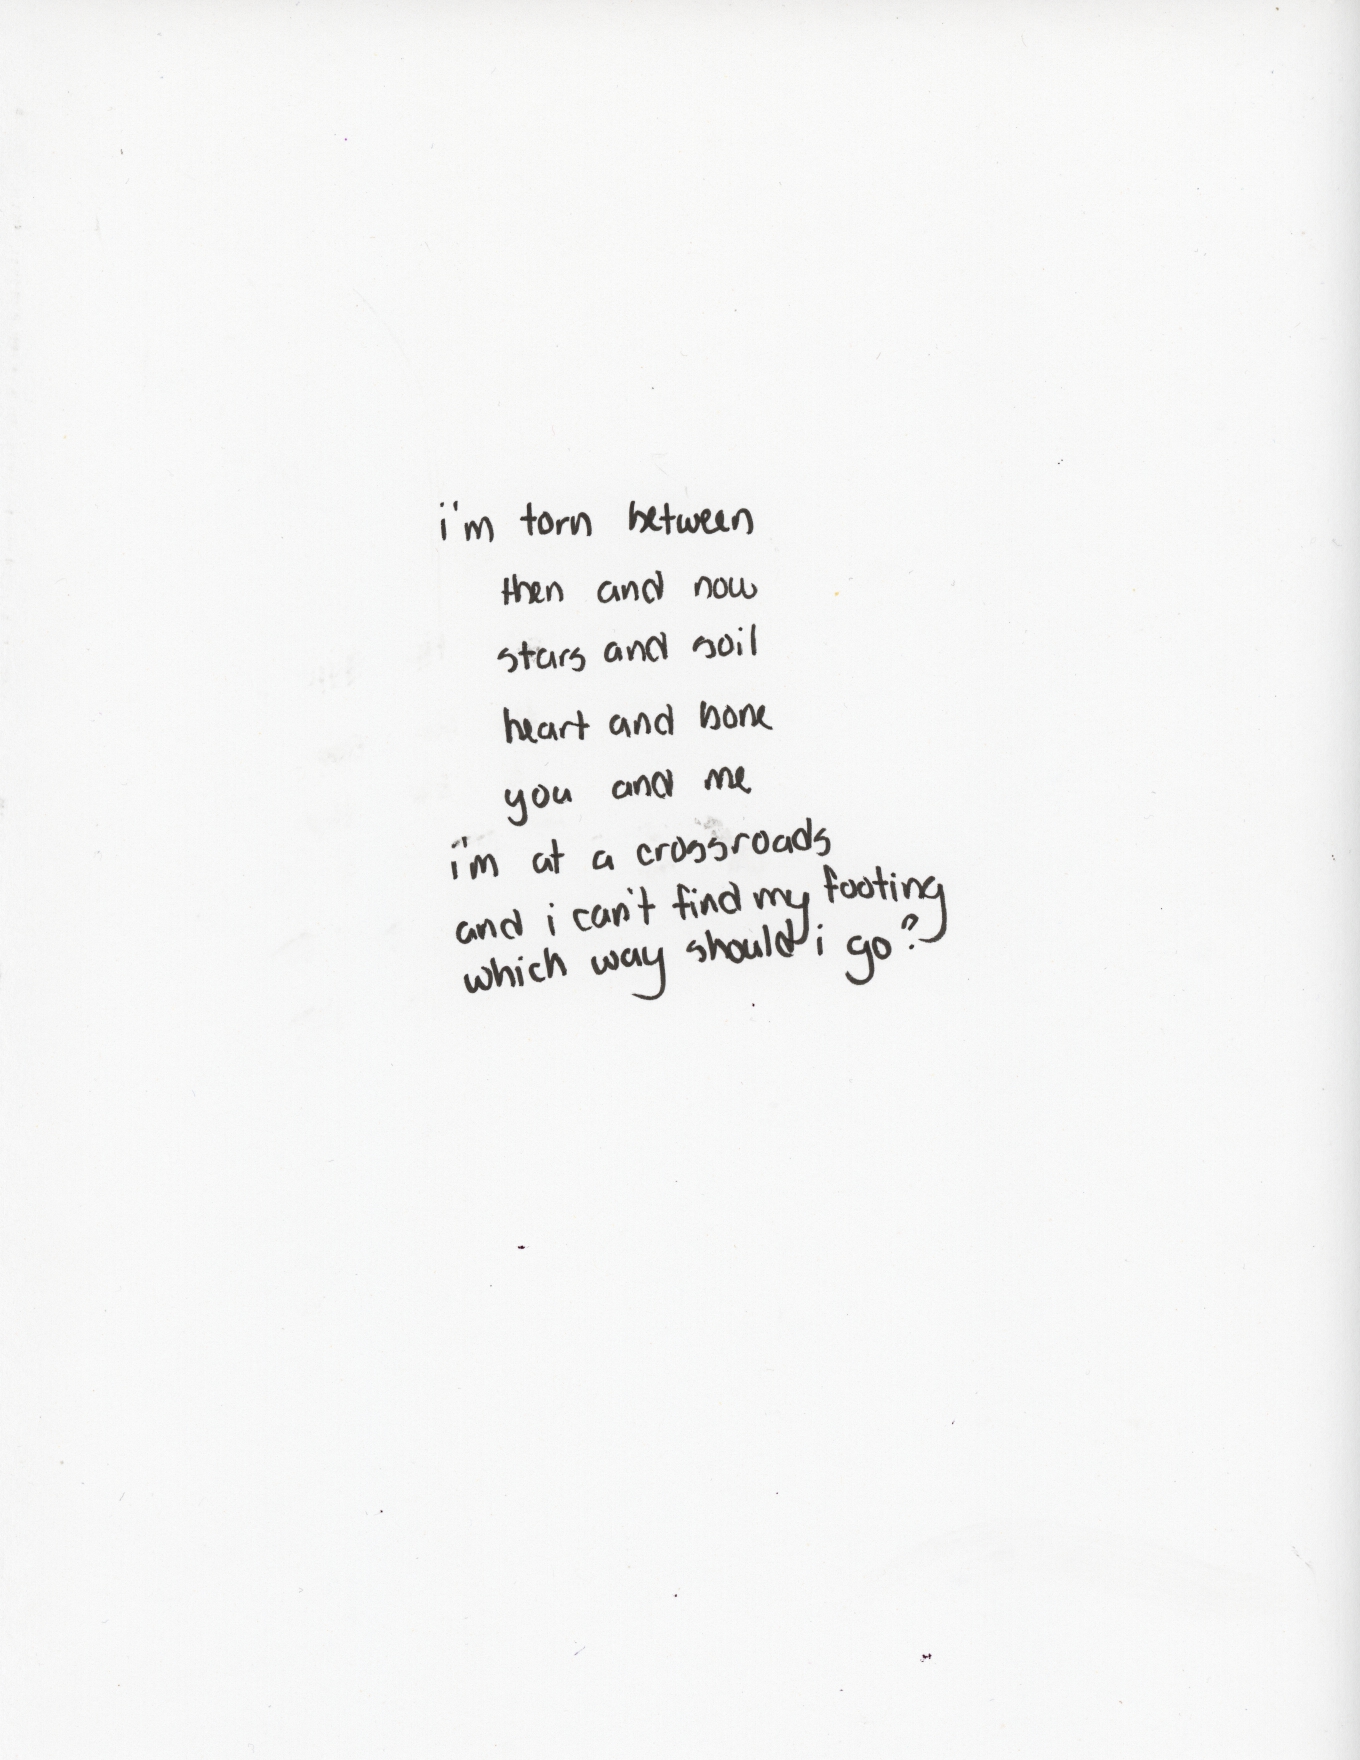 i'm torn between
then and now
stars and soil
heart and bone
you and me
i'm at a crossroads
and i can't find my footing
which way should i go?